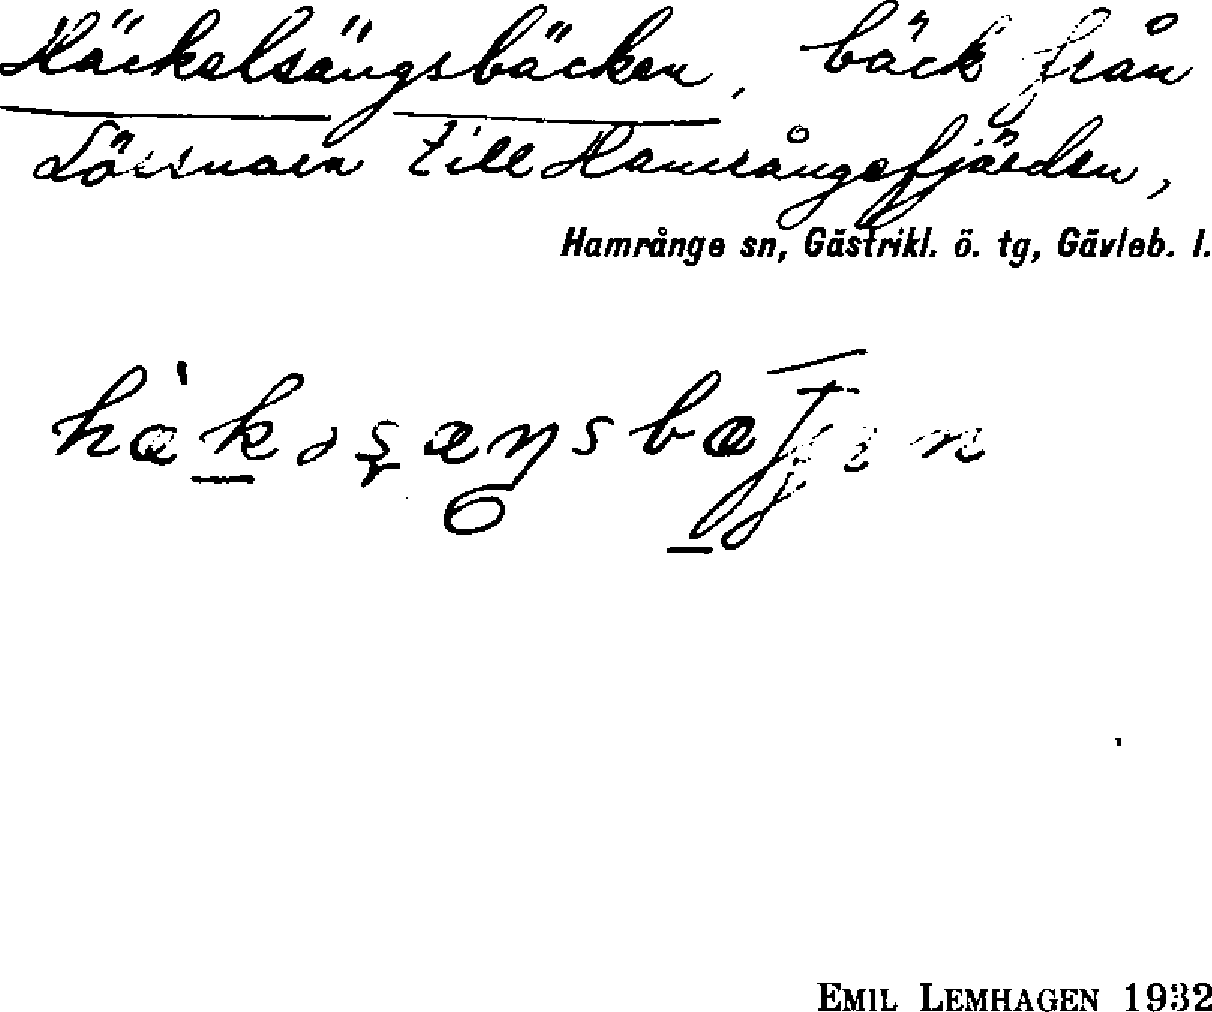 Häckelsängsbäcken, bäck från
till Hamrångefjärden,
Hamrånge sn, Gästrikl. ö. tg, Gävleb. l.
EMIL LEMHAGEN 1932